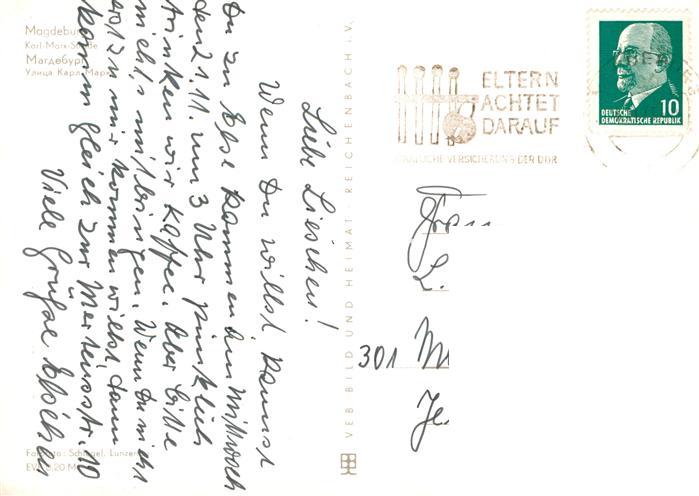 Magdeburg
Karl-Marx-Straße
Магдебург
Улица Карл Маркс
Liebe Lieschen!
Wenn Du willst kannst
Du zu Else kommen am Mittwoch
den 21.11. um 3 Uhr pünktlich
trinken wir Kaffee. Aber bitte
nichts mitbringen. Wenn Du nicht
zu mir kommen willst dann
komm gleich zur
10
Viele Grüße
EVP 0,20 M
VEB BILD UND HEIMAT · REICHENBACH i. V.
ELTERN
ACHTET
DARAUF
STAATLICHE VERSICHERUNG DER DDR
10
DEUTSCHE
DEMOKRATISCHE REPUBLIK
301 M